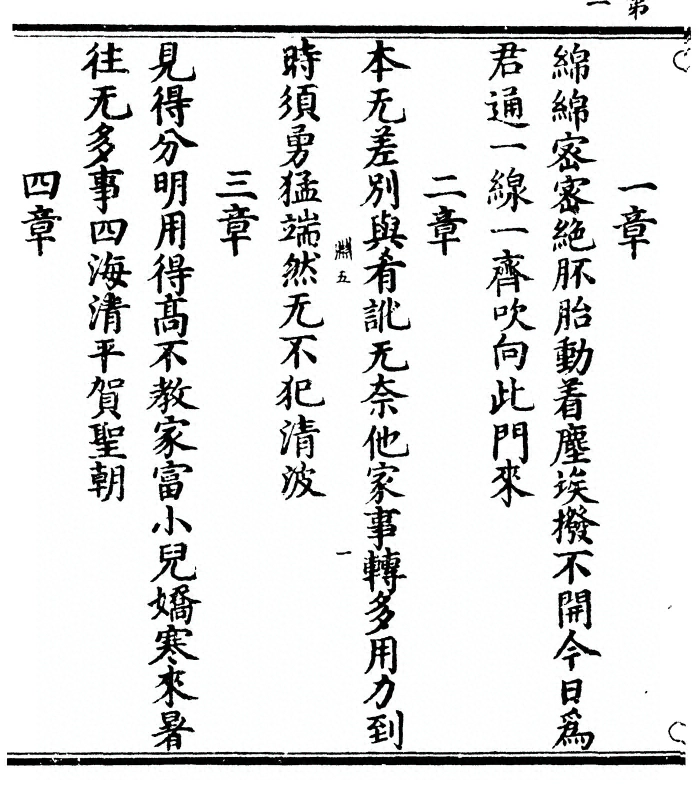 第一
一章
綿綿密密絶胚胎動着塵埃撥不開今日爲
君通一線一齊吹向此門來
二章
本无差別與肴訛无奈他家事轉多用力到
淵五
一
時須勇猛端然无不犯清波
三章
見得分明用得髙不教家富小兒嬌寒來暑
往无多事四海清平賀聖朝
四章